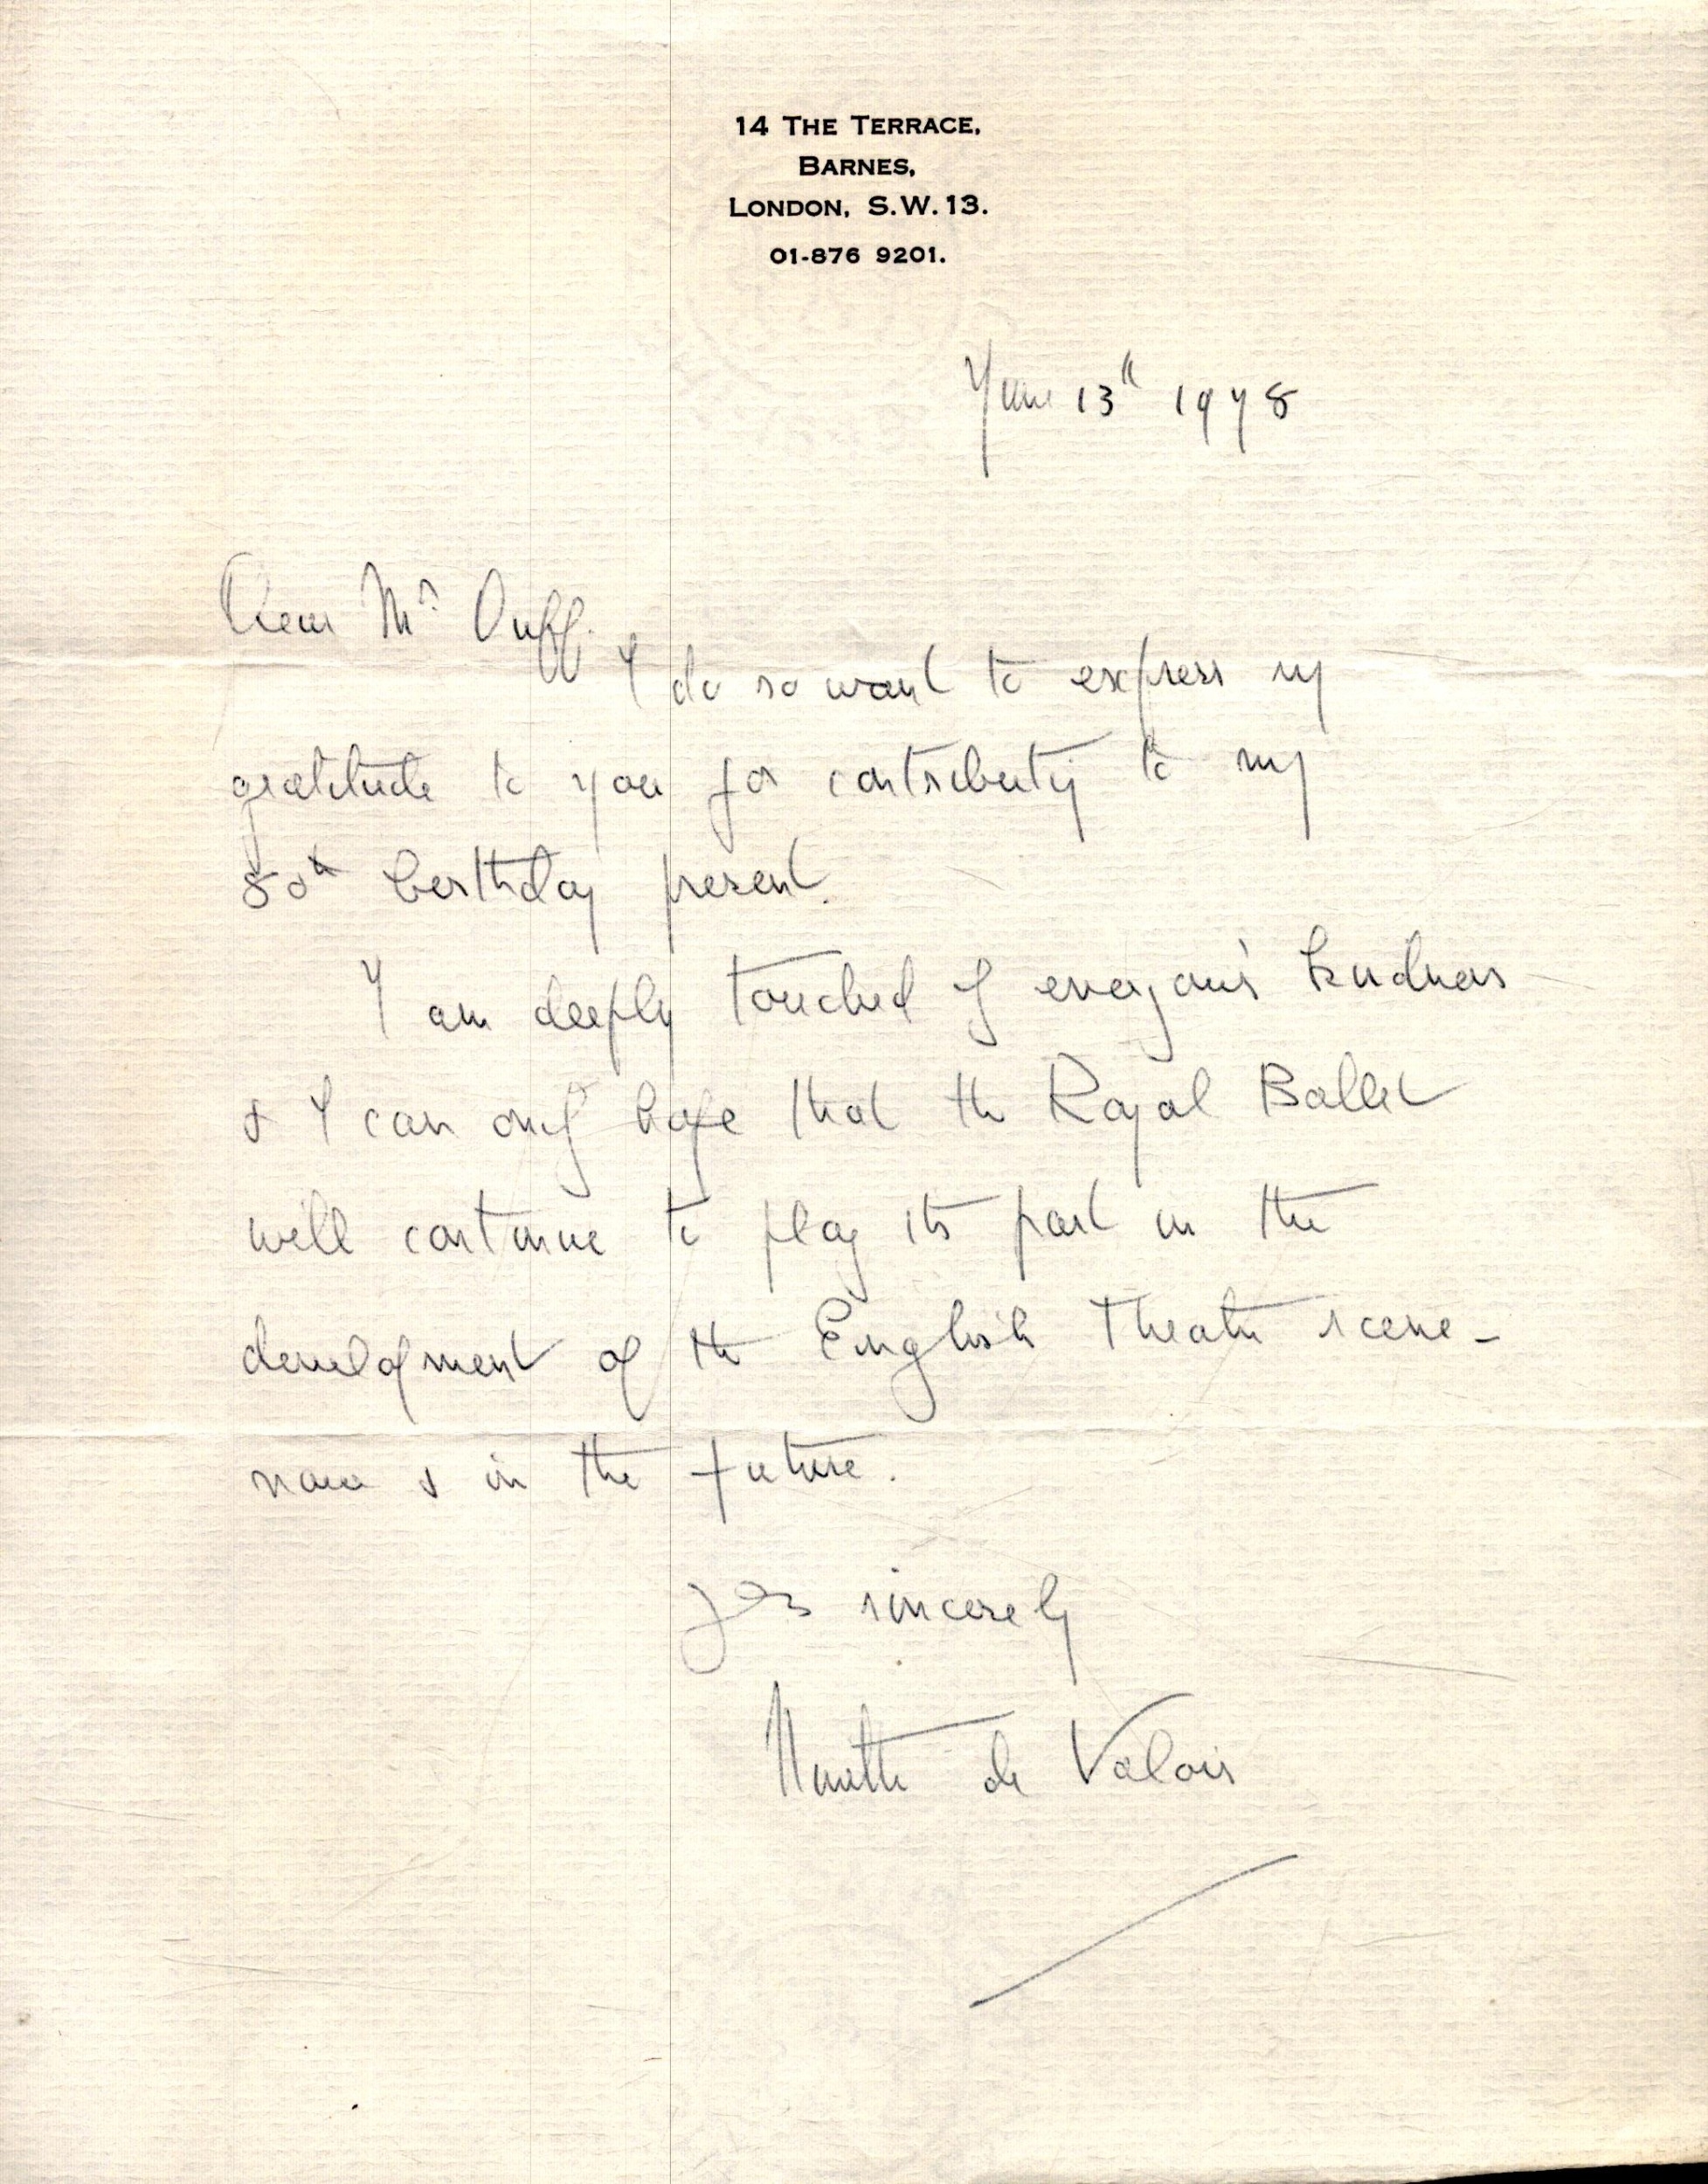 14 THE TERRACE,
BARNES,
LONDON, S.W.13.
01-876 9201.
June 13th 1978
Dear Mr Duff.
I do so want to express my
gratitude to you for contributing to my
80th birthday present.
I am deeply touched of everyone's kindness
& I can only hope that the Royal Ballet
will continue to play its part in the
development of the English Theatre scene -
now & in the future.
Yrs sincerely
Ninette de Valois